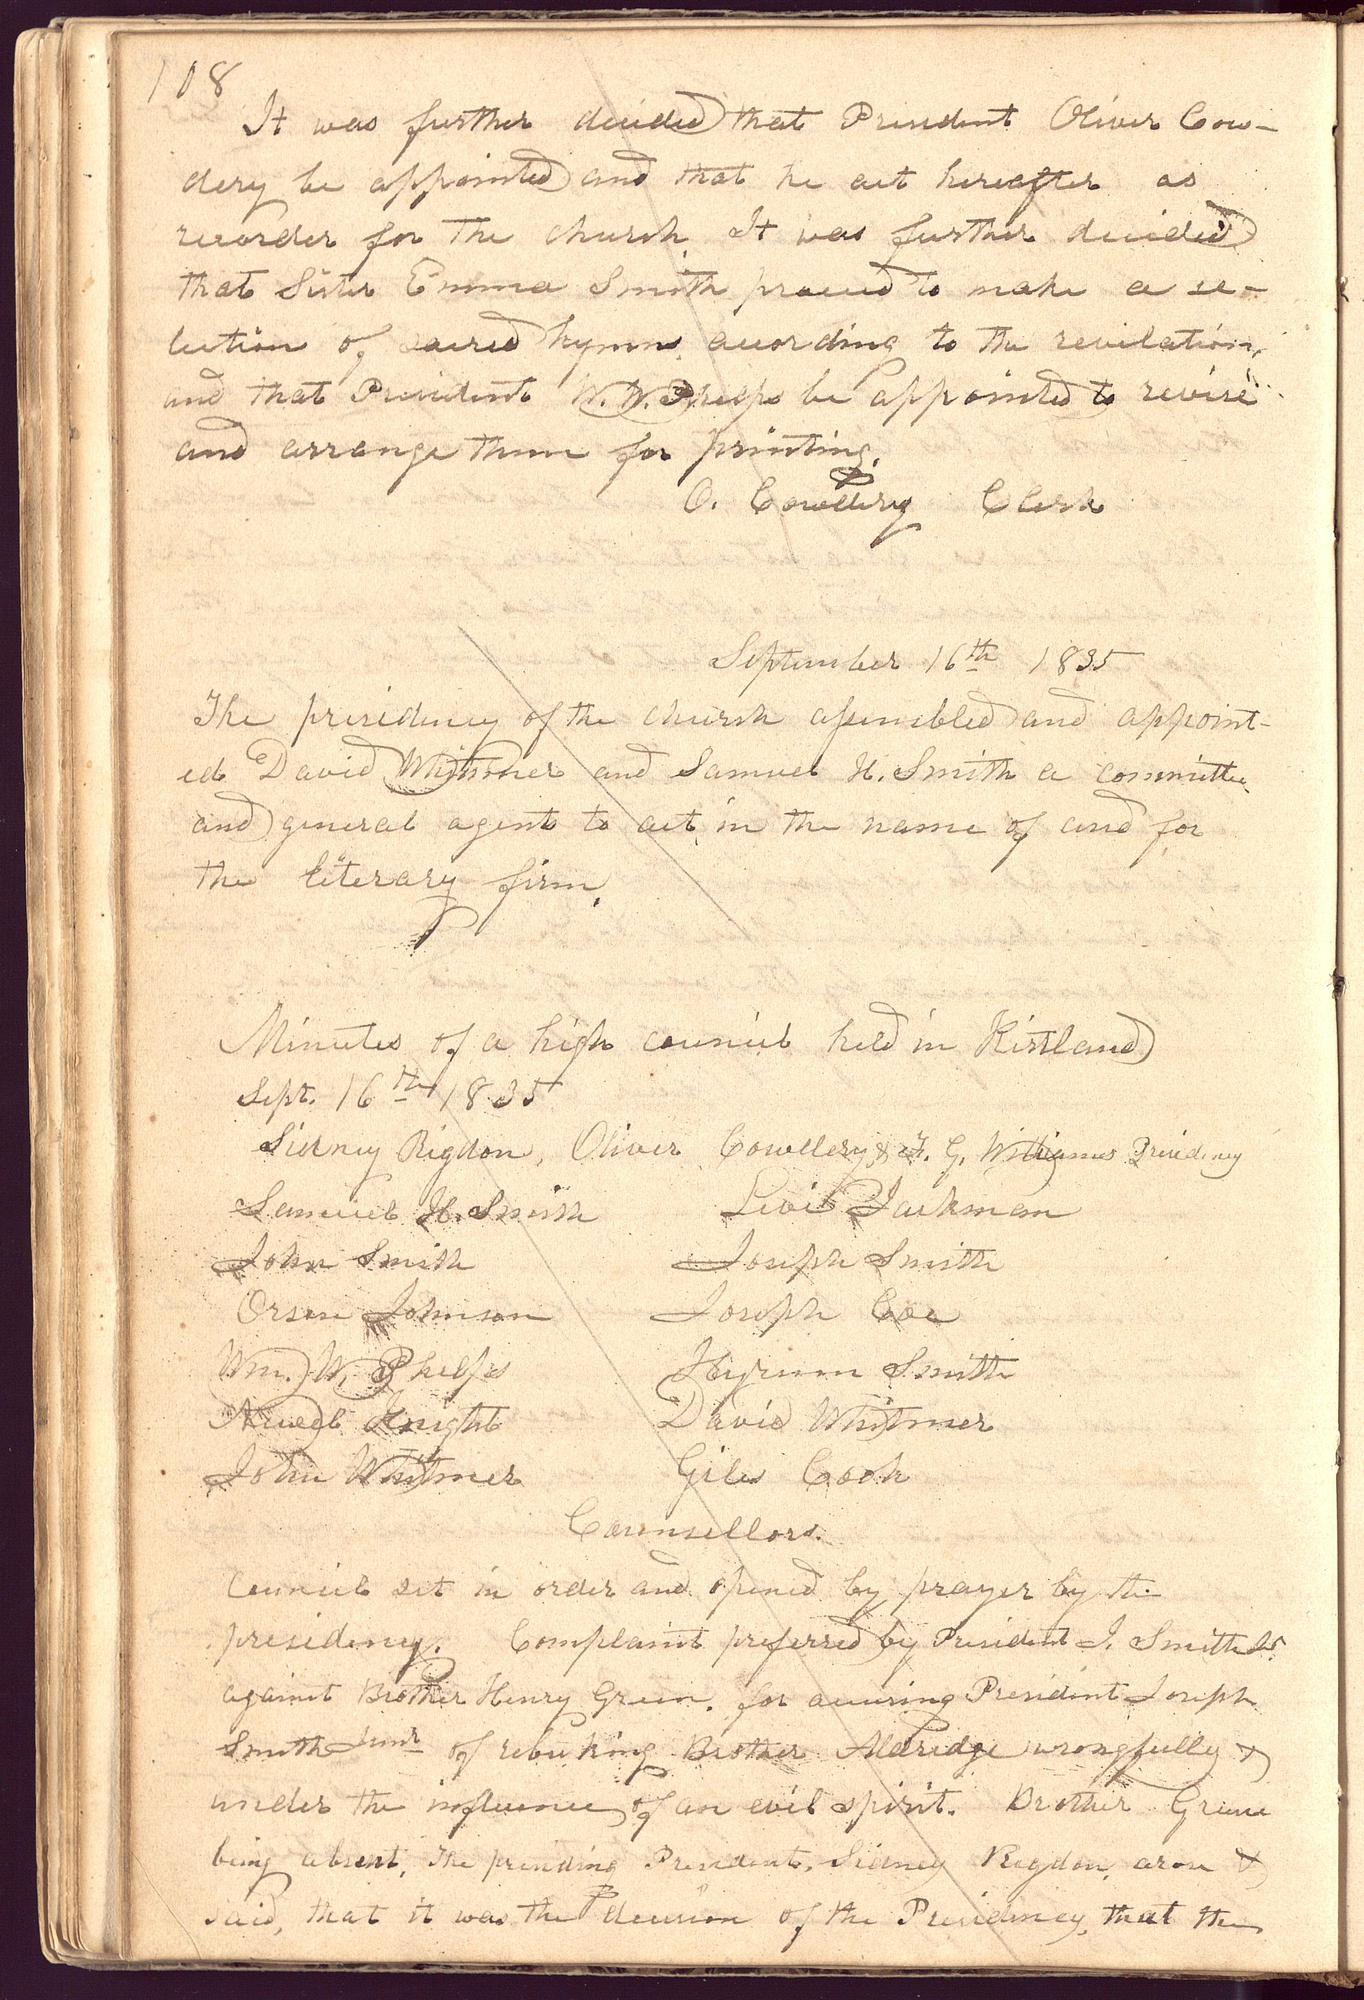 108
It was further decided that President Oliver Cow-
dery be appointed and that he act hereafter as
recorder for the church. It was further decided
that Sister Emma Smith proceed to make a se-
lection of sacred hymns according to the revelation,
and that President W. W. Phelps be appointed to revise
and arrange them for printing.
O. Cowdery Clerk
September 16th 1835
The presidency of the church assembled and appoint-
ed David Whitmer and Samuel H. Smith a committee
and general agents to act in the name of and for
the literary firm.
Minutes of a high council held in Kirtland
Sept. 16th 1835
Sidney Rigdon, Oliver Cowdery, & F. G. Williams Presidency
Samuel H. Smith Levi Jackman
John Smith Joseph Smith
Orson Johnson Joseph Coe
Wm. W. Phelps Hyrum Smith
Newel Knight David Whitmer
John Whitmer Giles Cook
Counsellors.
Council set in order and opened by prayer by the
presidency. Complaint preferred by President J. Smith Jr.
against Brother Henry Green, for accusing President Joseph
Smith Junr of rebuking Brother Aldridge wrongfully &
under the influence of an evil spirit. Brother Green
being absent, the presiding President, Sidney Rigdon, arose &
said, that it was the decision of the Presidency, that the